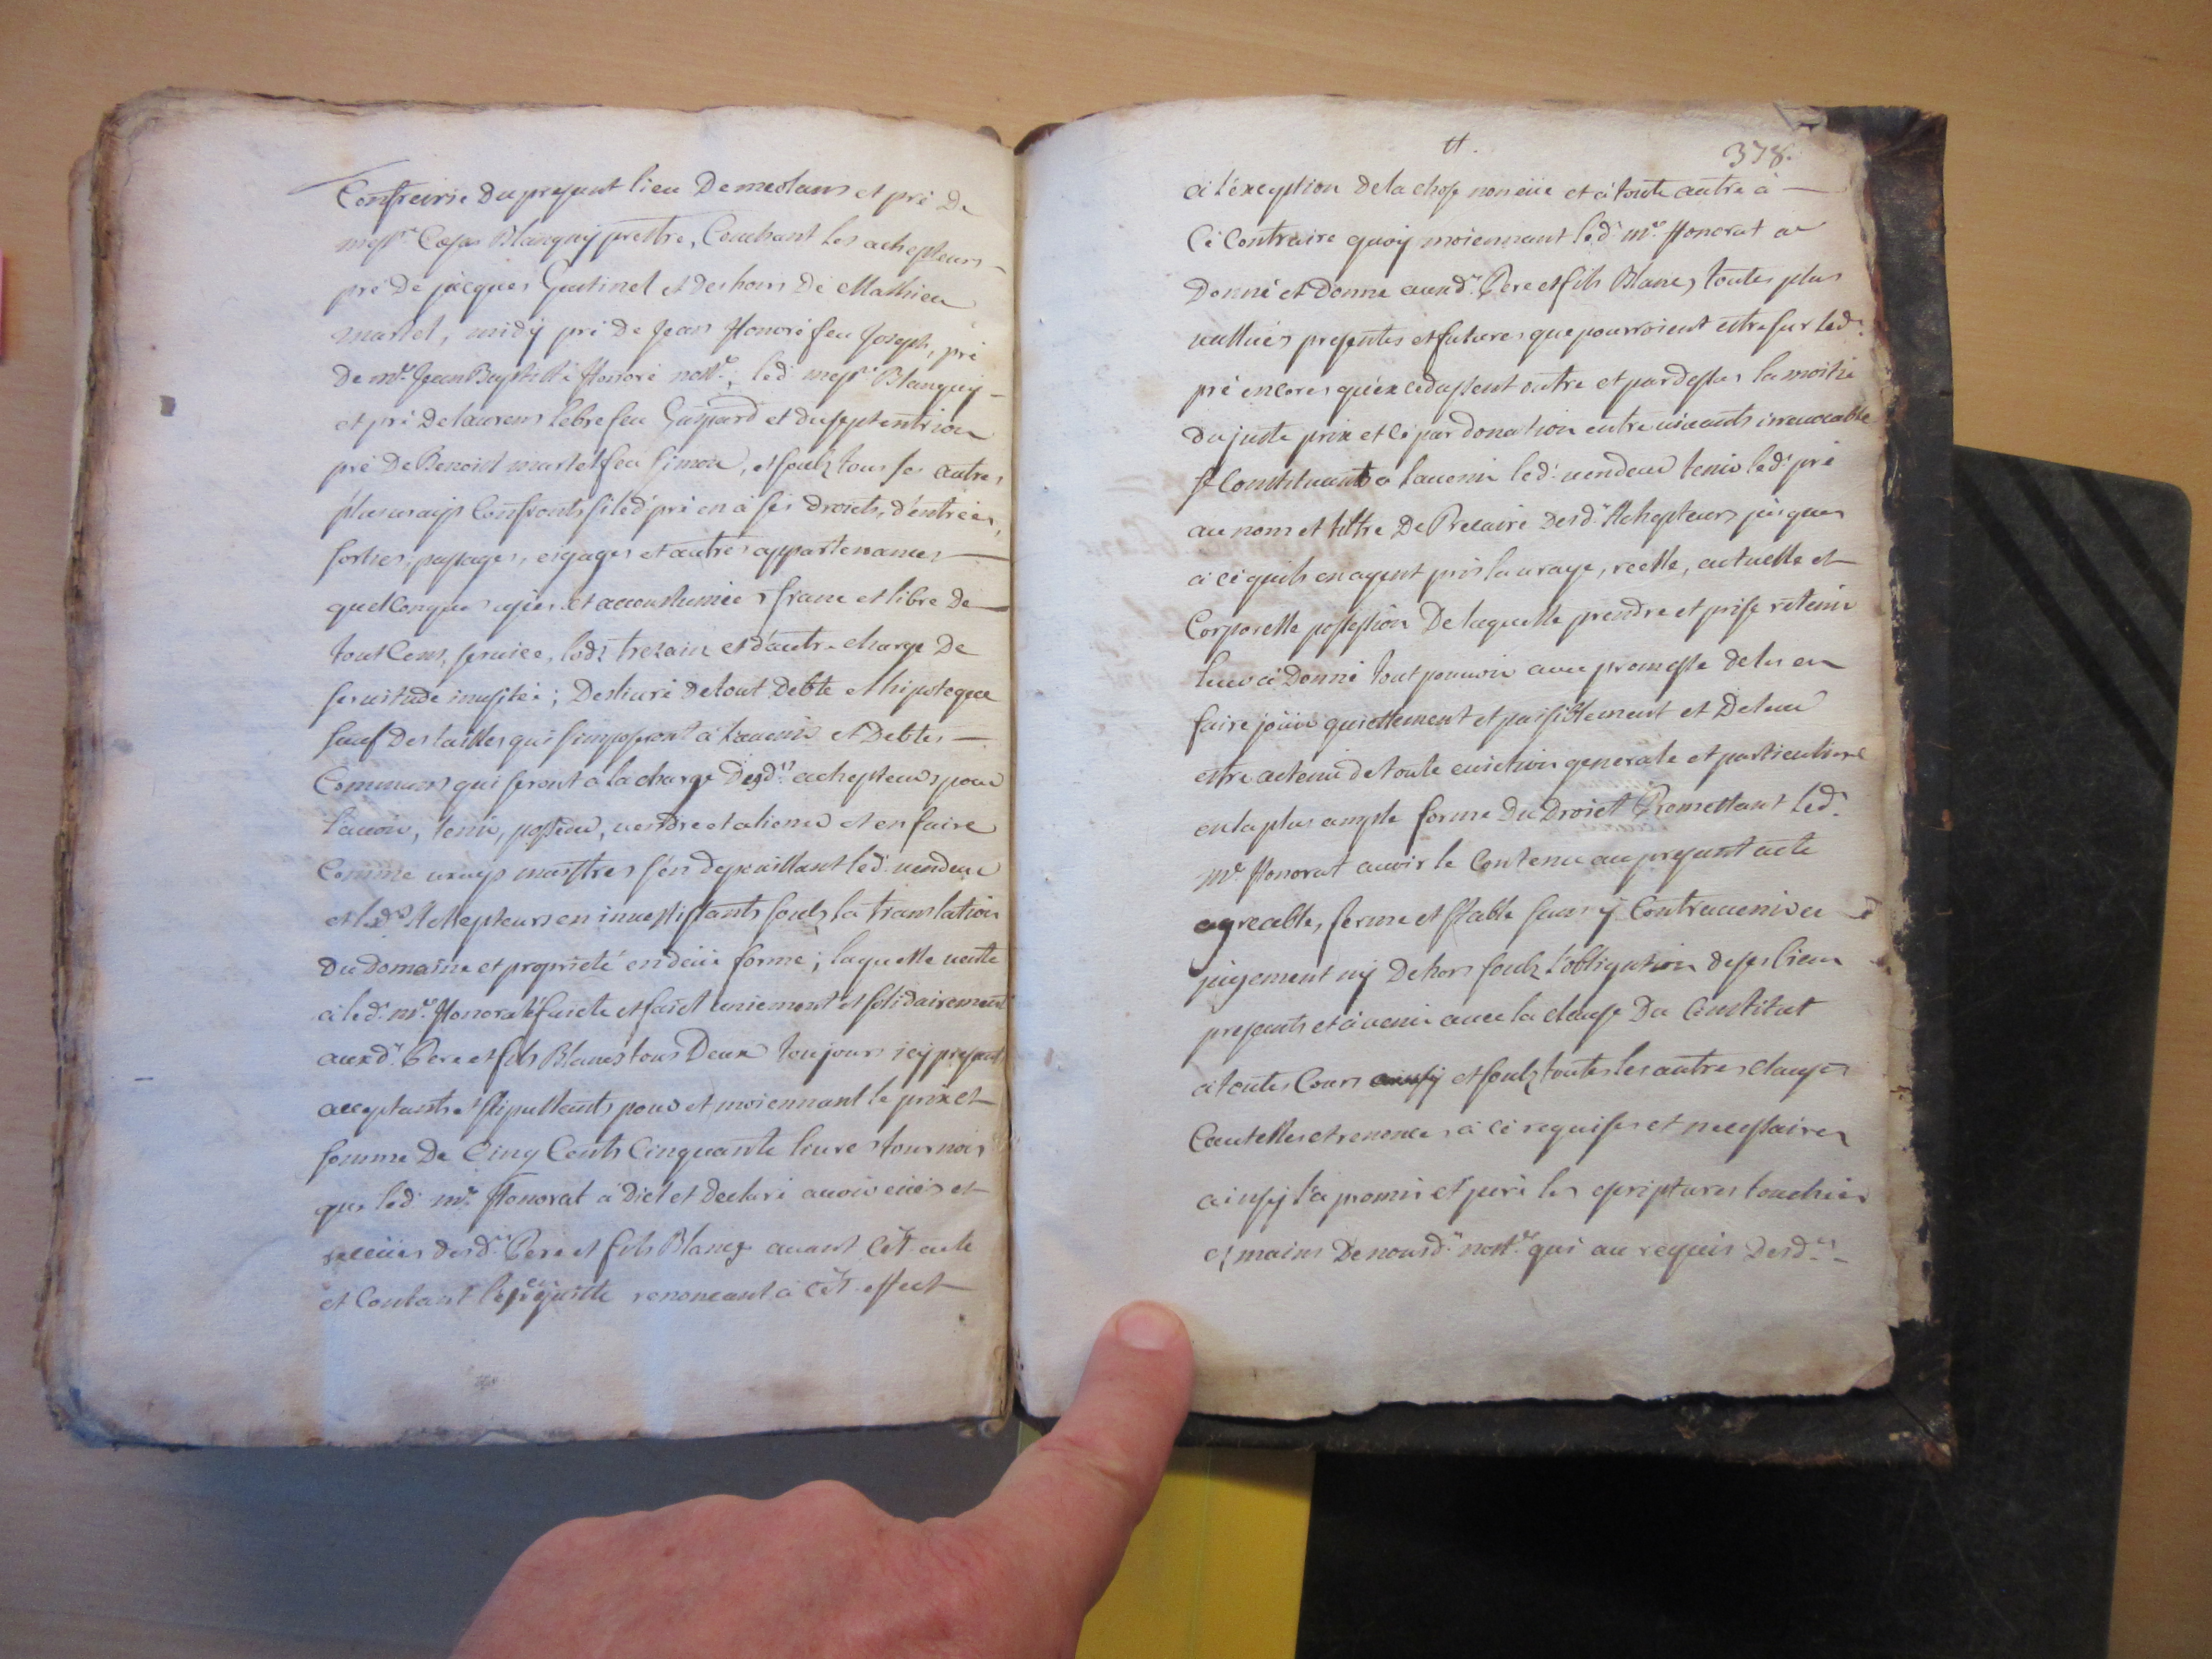 Confreirie du presant lieu De meolans et pré De
mess.re Cesar Blanquy prestre, Couchant les achepteurs
pré De jacques Gastinel et des hoirs De Mathieu
martel, midy pré De Jean Honoré feu Joseph, pré
De m.e Jean Baptiste Honoré nott.e, led. mess.re Blanquy
et pré De laurens lebre feu Gaspard et du septentrion
pré De Benoist martel feu Simon, et soulz tous ses autres
plus vrays Confronts si led. pré en à ses Droicts, d'entrées,
sorties, passages, eygages et autres appartenances
quelConques usées et accoustumées franc et libre De
tout Cens, service, lodz trezain et d'autre charge De
servitude inusitée; Deslivré De tout Debte et hipoteque
sauf Des tailles qui s'imposeront à l'avenir et Debtes
Communs qui seront à la charge Desd.ts achepteurs pour
l'avoir, tenir, posseder, vendre et aliener et en faire
Comme vrays maistres s'en depouillant led. vendeur
et lesd.ts Achepteurs en investissants soulz la translation
Du Domaine et proprieté en deüe forme; laquelle vente
à led. m.e Honorat faicte et faict uniement et solidairement
auxd.ts Pere et fils Blancs tous Deux toujours icy presant
acceptants et stipullants pour et moiennant le prix et
somme De Cinq Cents Cinquante livres tournois
que led. m.e Honorat à Dict et Declaré avoir eües et
receües desd.ts Pere et fils Blancs avant Cet acte
et Contant renoncant à Cet effect
tt.
378.
à l'exception De la chose non eüe et à toute autre à
Cé Contraire quoy moiennant led. m.e Honorat a
Donné et Donne auxd.ts Pere et fils Blancs toutes plus
vallües presentes et futures que pourroient estre sur led.
pré encores qu'excedassent outre et pardessus la moitié
Du juste prix et Cé par donation entre vivants irrevocable
se Constituant a l'avenir led. vendeur tenir led. pré
au nom et tiltre De Precaire Desd.ts Achepteurs jusques
à cé quils en ayent pris la vraye, reelle, actuelle et
Corporelle possession De laquelle prendre et prise retenir
leur à Donné tout pouvoir avec promesse de les en
faire joüir quiettement et paisiblement et De leur
estre actenu de toute eviction generale et particuliere
en la plus ample forme Du Droict Promettant led.
m.e Honorat avoir le Contenu au presant acte
agreable, ferme et stable sans y Contrevenir en
jugement ny Dehors soulz l'obligation de ses biens
presants et à venir avec la clause Du Constitut
à toutes Cours et soulz toutes les autres clauses
Cautelles et renonces à cé requises et necessaires
ainsy l'à promis et juré les escriptures touchées
es mains De nousd. nott.e qui au requis Desd.ts